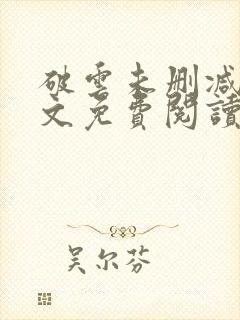 破雲未刪減
文免費閱讀
吴尔芬